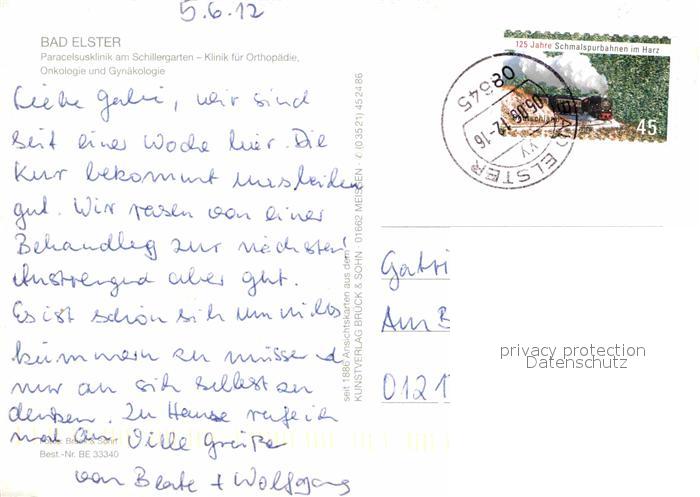 5.6.12
BAD ELSTER
Paracelsusklinik am Schillergarten – Klinik für Orthopädie,
Onkologie und Gynäkologie
Liebe Gabi, wir sind
seit einer Woche hier. Die
Kur bekommt uns beiden
gut. Wir rasen von einer
Behandlug zur nächsten!
Anstrengend aber gut.
Es ist schön sich um nichts
kümmern zu müssen und
nur an sich selbst zu
denken. Zu Hause rufe ich
mal an Viele Grüße
von Beate + Wolfgang
Foto: Brück & Sohn
Best.-Nr. BE 33340
seit 1886 Ansichtskarten aus dem
KUNSTVERLAG BRÜCK & SOHN · 01662 MEISSEN · ✆ (03521) 45 24 86
125 Jahre Schmalspurbahnen im Harz
Deutschland
45
08645
05.06.12-16
VV
BAD ELSTER
Gabri
Am B
0121
privacy protection
Datenschutz